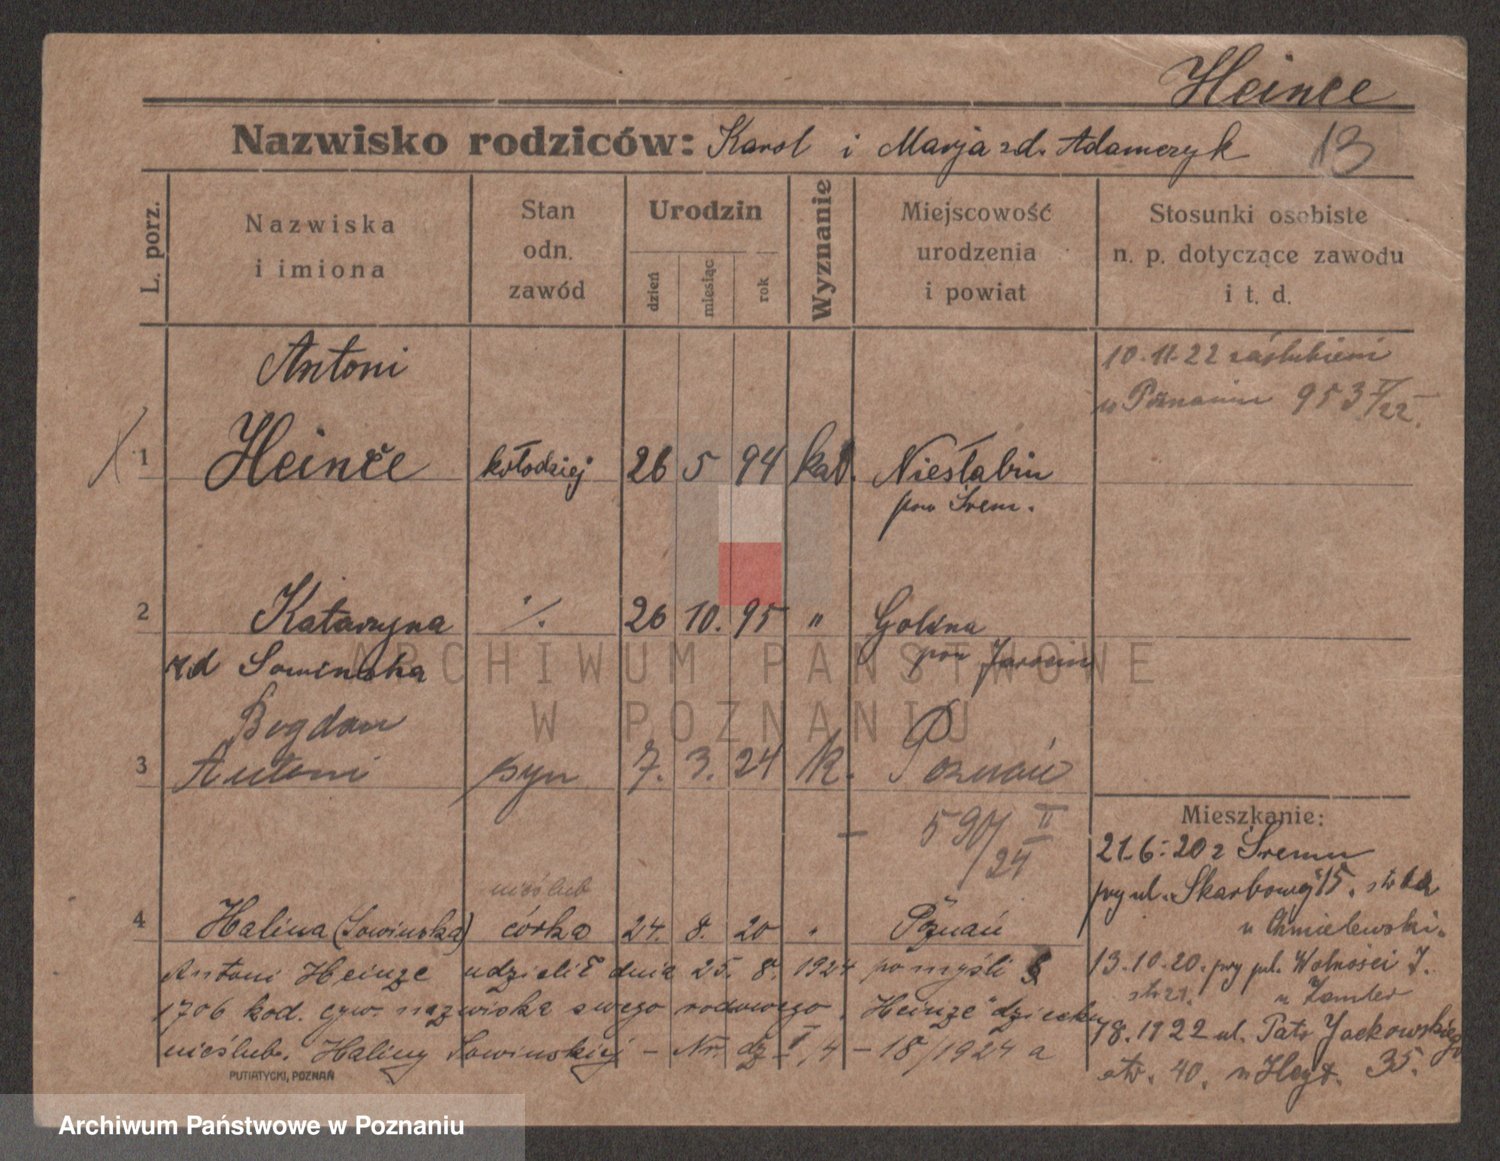 Heince
Nazwisko rodziców: Karol i Marja zd. Adamczyk
13
L. porz.
Nazwiska
i imiona
Stan
odn.
zawód
Urodzin
dzień
miesiąc
rok
Wyznanie
Miejscowość
urodzenia
i powiat
Stosunki osobiste
n. p. dotyczące zawodu
i t. d.
Antoni
10.11.22 zaślubieni
w Poznaniu 953 I/22.
1 Heinče kołodziej 26 5 94 kat. Niesłabin
pow Śrem.
2 Katarzyna ./. 26 10. 95 " Golina
zd Sowinska pow Jarocin
Bogdan
3 Antoni syn 7. 3. 24 k. Poznań
590/II/24
Mieszkanie:
21-6-20 z Śremu
przy ul. Skarbowej 15.
u Chmielewski.
nieślub
4 Halina (Sowinska) córka 24. 8. 20 Poznań
13.10.20. przy pl. Wolności 7.
str 21. u
Antoni Heinze udzielił dnia 25. 8. 1924 po myśli §
1706 kod. cyw. nazwiska swego rodowego „Heinze" dziecku
nieślub. Haliny Sowinskiej - Nr dz I/4 - 18/1924 a
1922 ul. Patr Jackowskiego 35.
str. 40. u
PUTIATYCKI, POZNAŃ
ARCHIWUM PAŃSTWOWE
W POZNANIU
Archiwum Państwowe w Poznaniu